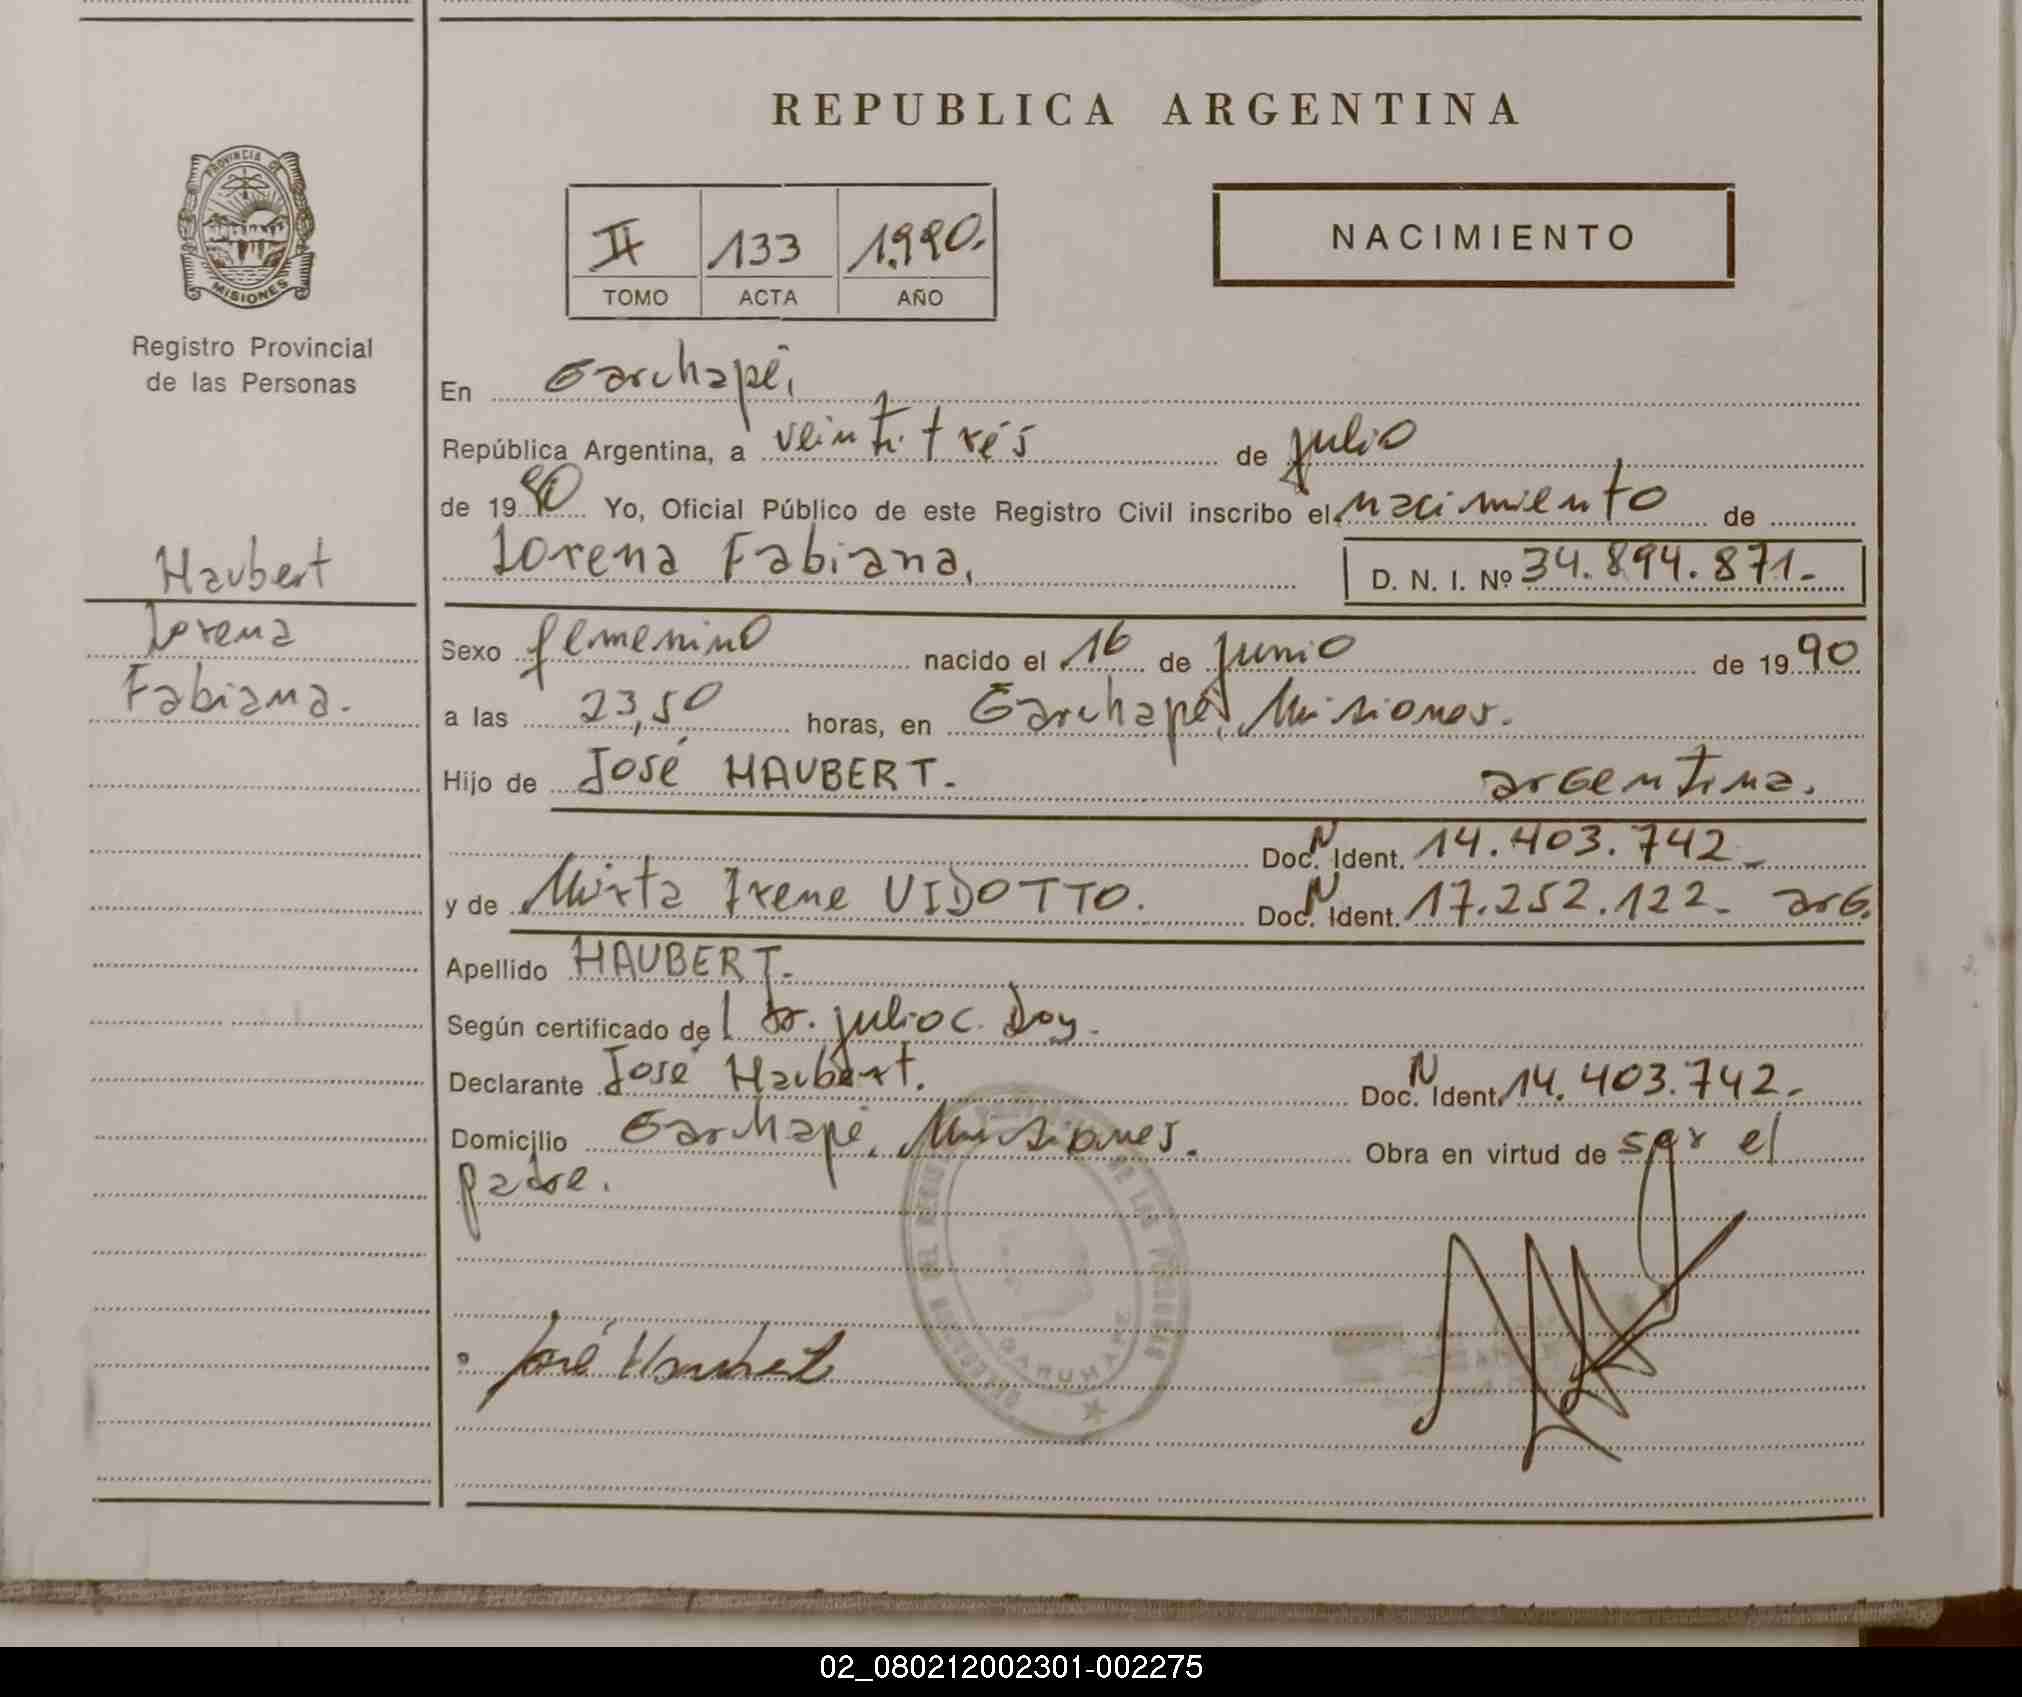 REPUBLICA ARGENTINA
PROVINCIA DE
MISIONES
Registro Provincial
de las Personas
II 133 1.990.
TOMO ACTA AÑO
NACIMIENTO
En Garuhapé,
República Argentina, a veintitrés de julio
de 1990 Yo, Oficial Público de este Registro Civil inscribo el nacimiento de
Lorena Fabiana, D. N. I. Nº 34.894.871.-
Haubert
Lorena
Fabiana.
Sexo femenino nacido el 16 de junio de 1990
a las 23,50 horas, en Garuhapé, Misiones.
Hijo de José HAUBERT. argentina.
Doc. N Ident. 14.403.742-
y de Mirta Irene VIDOTTO. Doc. N Ident. 17.252.122- arG.
Apellido HAUBERT.
Según certificado del Dr. julio c. Doy.
Declarante José Haubert. Doc. N Ident. 14.403.742-
Domicilio Garuhapé, Misiones. Obra en virtud de ser el
padre.
José Haubert
02_080212002301-002275